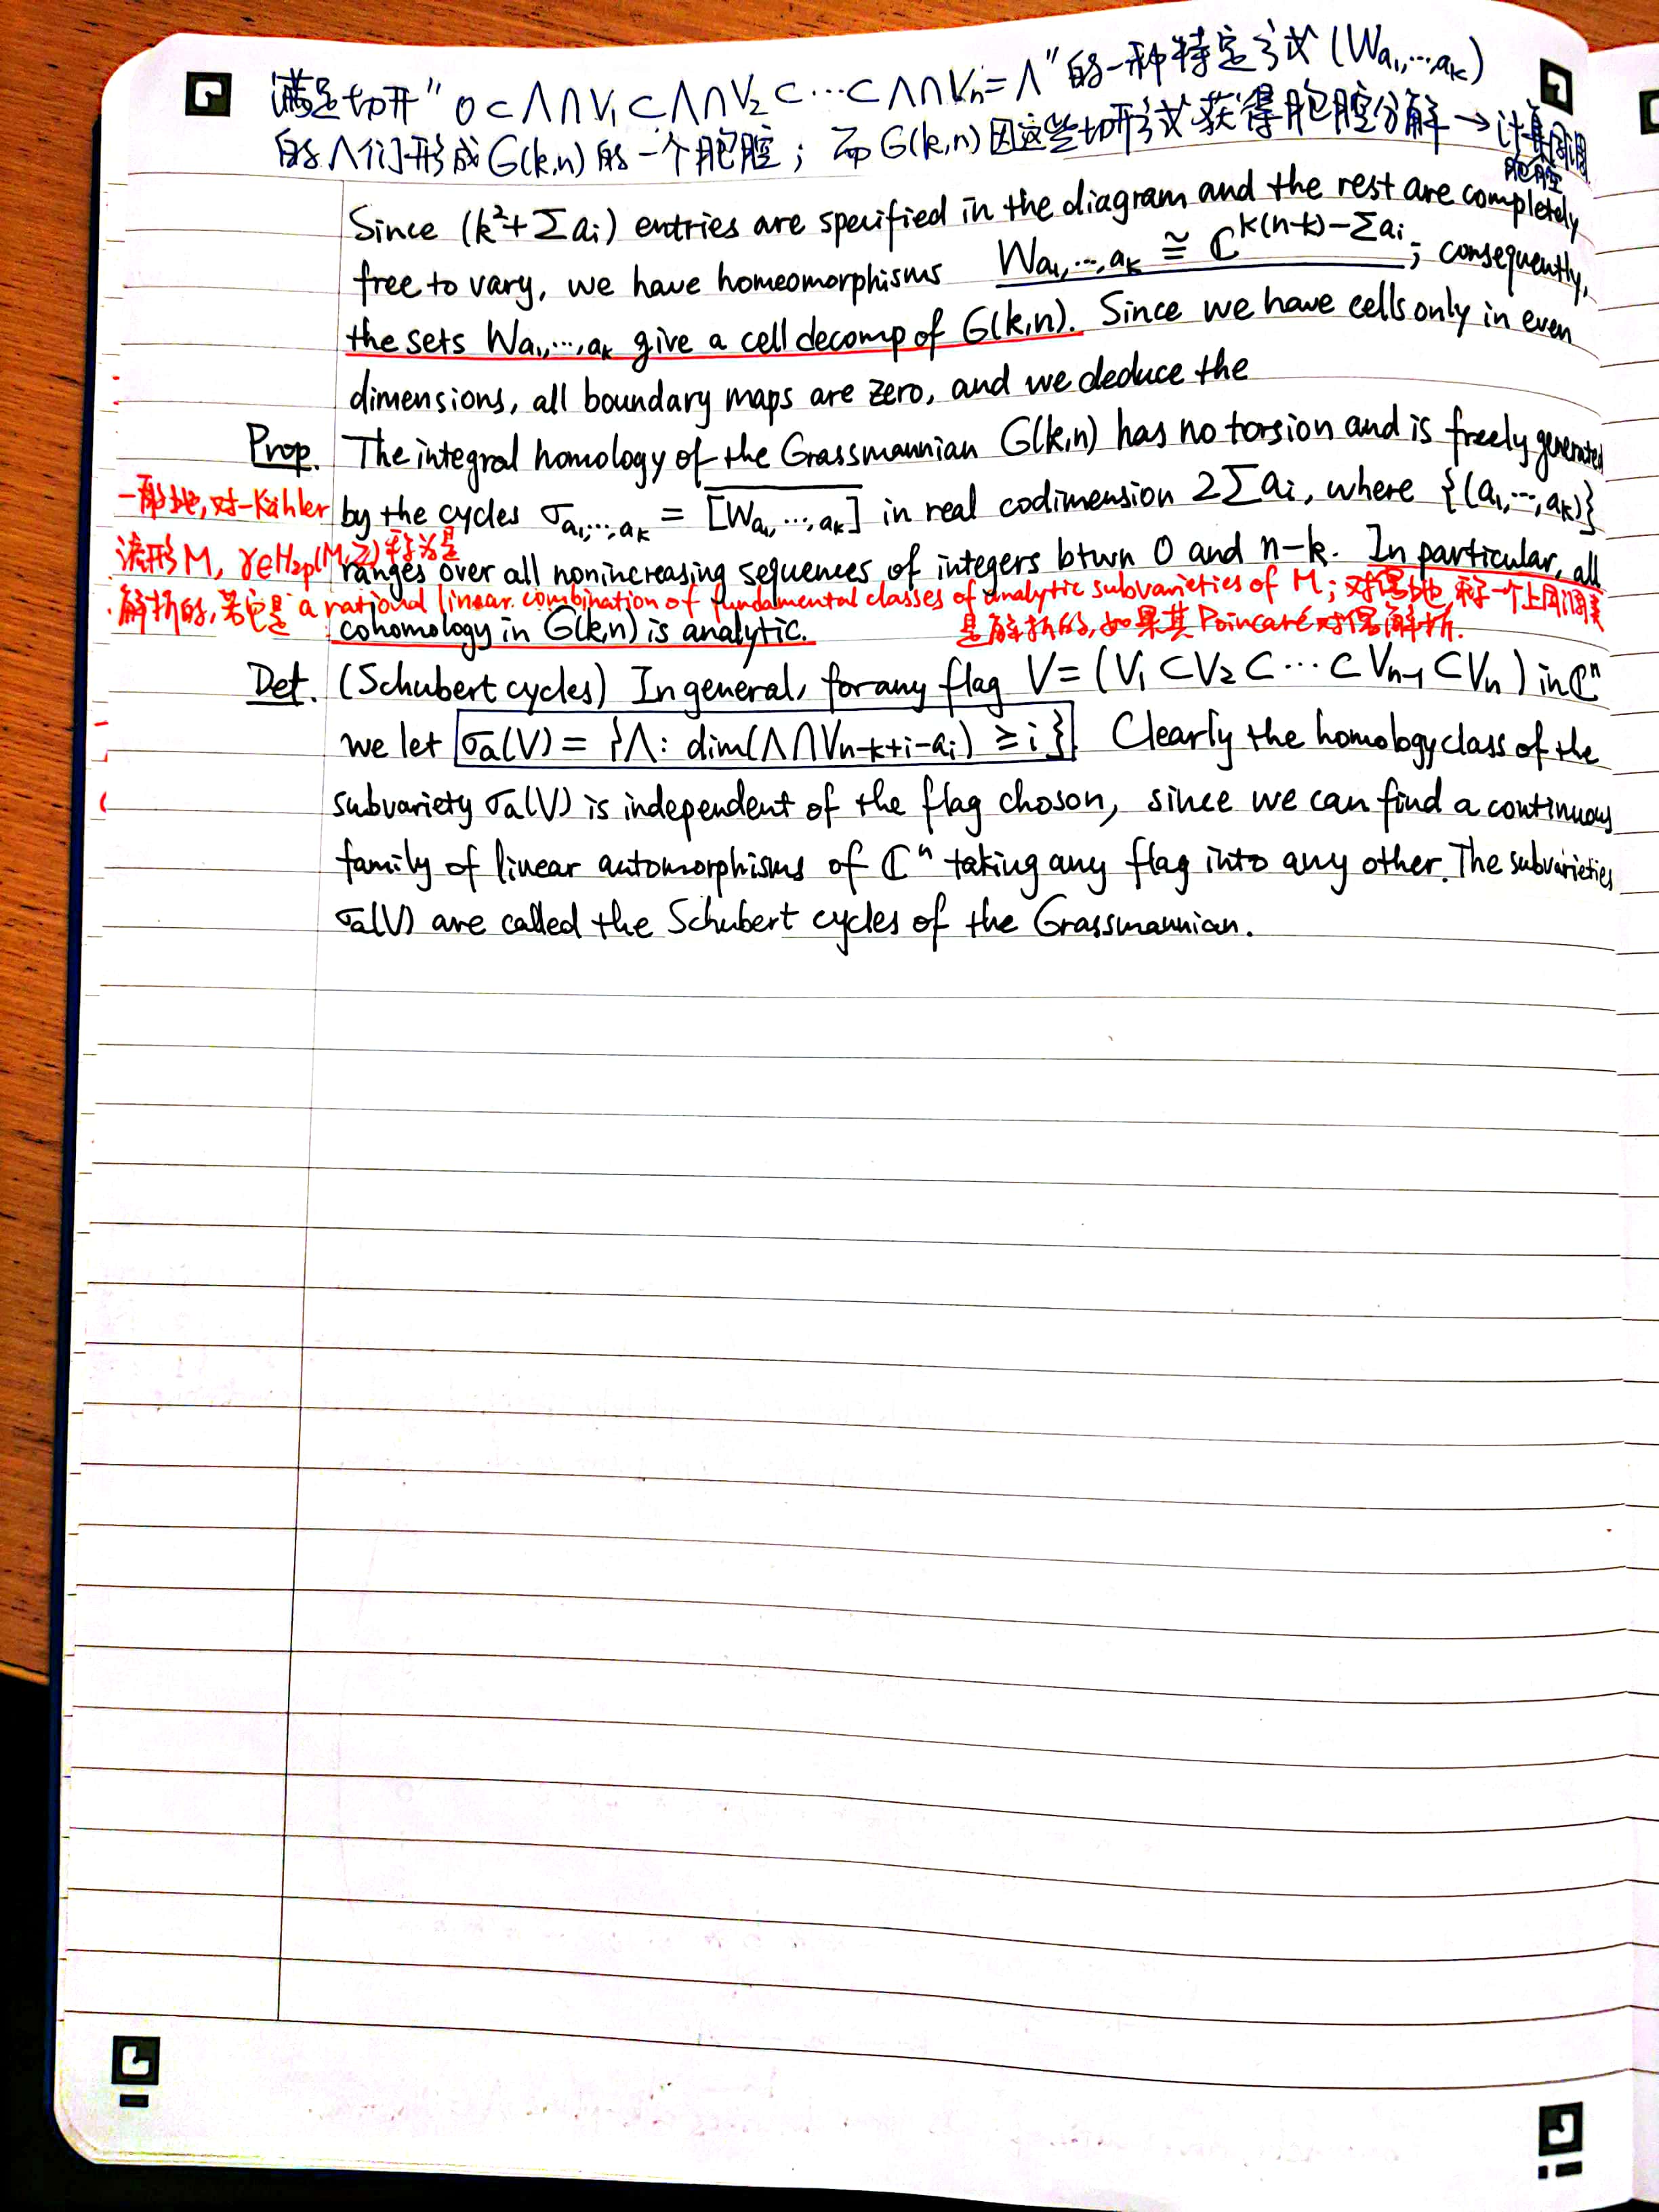 满足切开"0⊂Λ∩V₁⊂Λ∩V₂⊂⋯⊂Λ∩Vₙ=Λ"的一种特定方式(W_{a₁,⋯,aₖ})
的Λ们形成G(k,n)的一个胞腔；而G(k,n)因这些切开方式获得胞腔分解→计算
胞腔
Since (k²+Σaᵢ) entries are specified in the diagram and the rest are completely
free to vary, we have homeomorphisms W_{a₁,⋯,aₖ} ≅ ℂ^{k(n-k)-Σaᵢ}; consequently,
the sets W_{a₁,⋯,aₖ} give a cell decomp of G(k,n). Since we have cells only in even
dimensions, all boundary maps are zero, and we deduce the
Prop. The integral homology of the Grassmannian G(k,n) has no torsion and is freely generated
by the cycles σ_{a₁,⋯,aₖ} = [\overline{W_{a₁,⋯,aₖ}}] in real codimension 2Σaᵢ, where {(a₁,⋯,aₖ)}
ranges over all nonincreasing sequences of integers btwn 0 and n-k. In particular, all
cohomology in G(k,n) is analytic.
一般地,对一Kähler
流形M, γ∈H₂ₚ(M,ℤ)称为是
解析的,若它是 a rational linear combination of fundamental classes of analytic subvarieties of M；对偶地,称一个上同调类
是解析的,如果其Poincaré对偶解析.
Def. (Schubert cycles) In general, for any flag V=(V₁⊂V₂⊂⋯⊂Vₙ₋₁⊂Vₙ) in ℂⁿ
we let σₐ(V)={Λ: dim(Λ∩V_{n-k+i-aᵢ})≥i}. Clearly the homology class of the
subvariety σₐ(V) is independent of the flag choson, since we can find a continuous
family of linear automorphisms of ℂⁿ taking any flag into any other. The subvarieties
σₐ(V) are called the Schubert cycles of the Grassmannian.